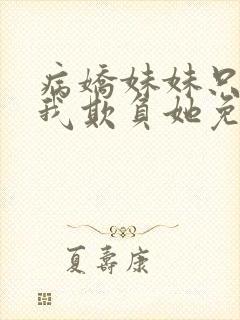 病嬌妹妹只
我欺負她免
夏壽康